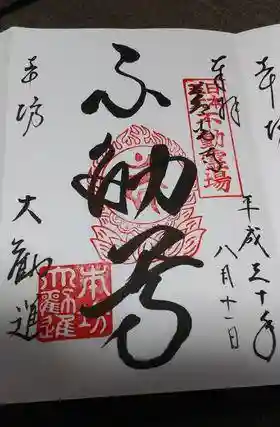 奉拝
日本不動霊場
平成三十年
八月十一日
不動尊
本坊
大勧進
本坊
大勧進